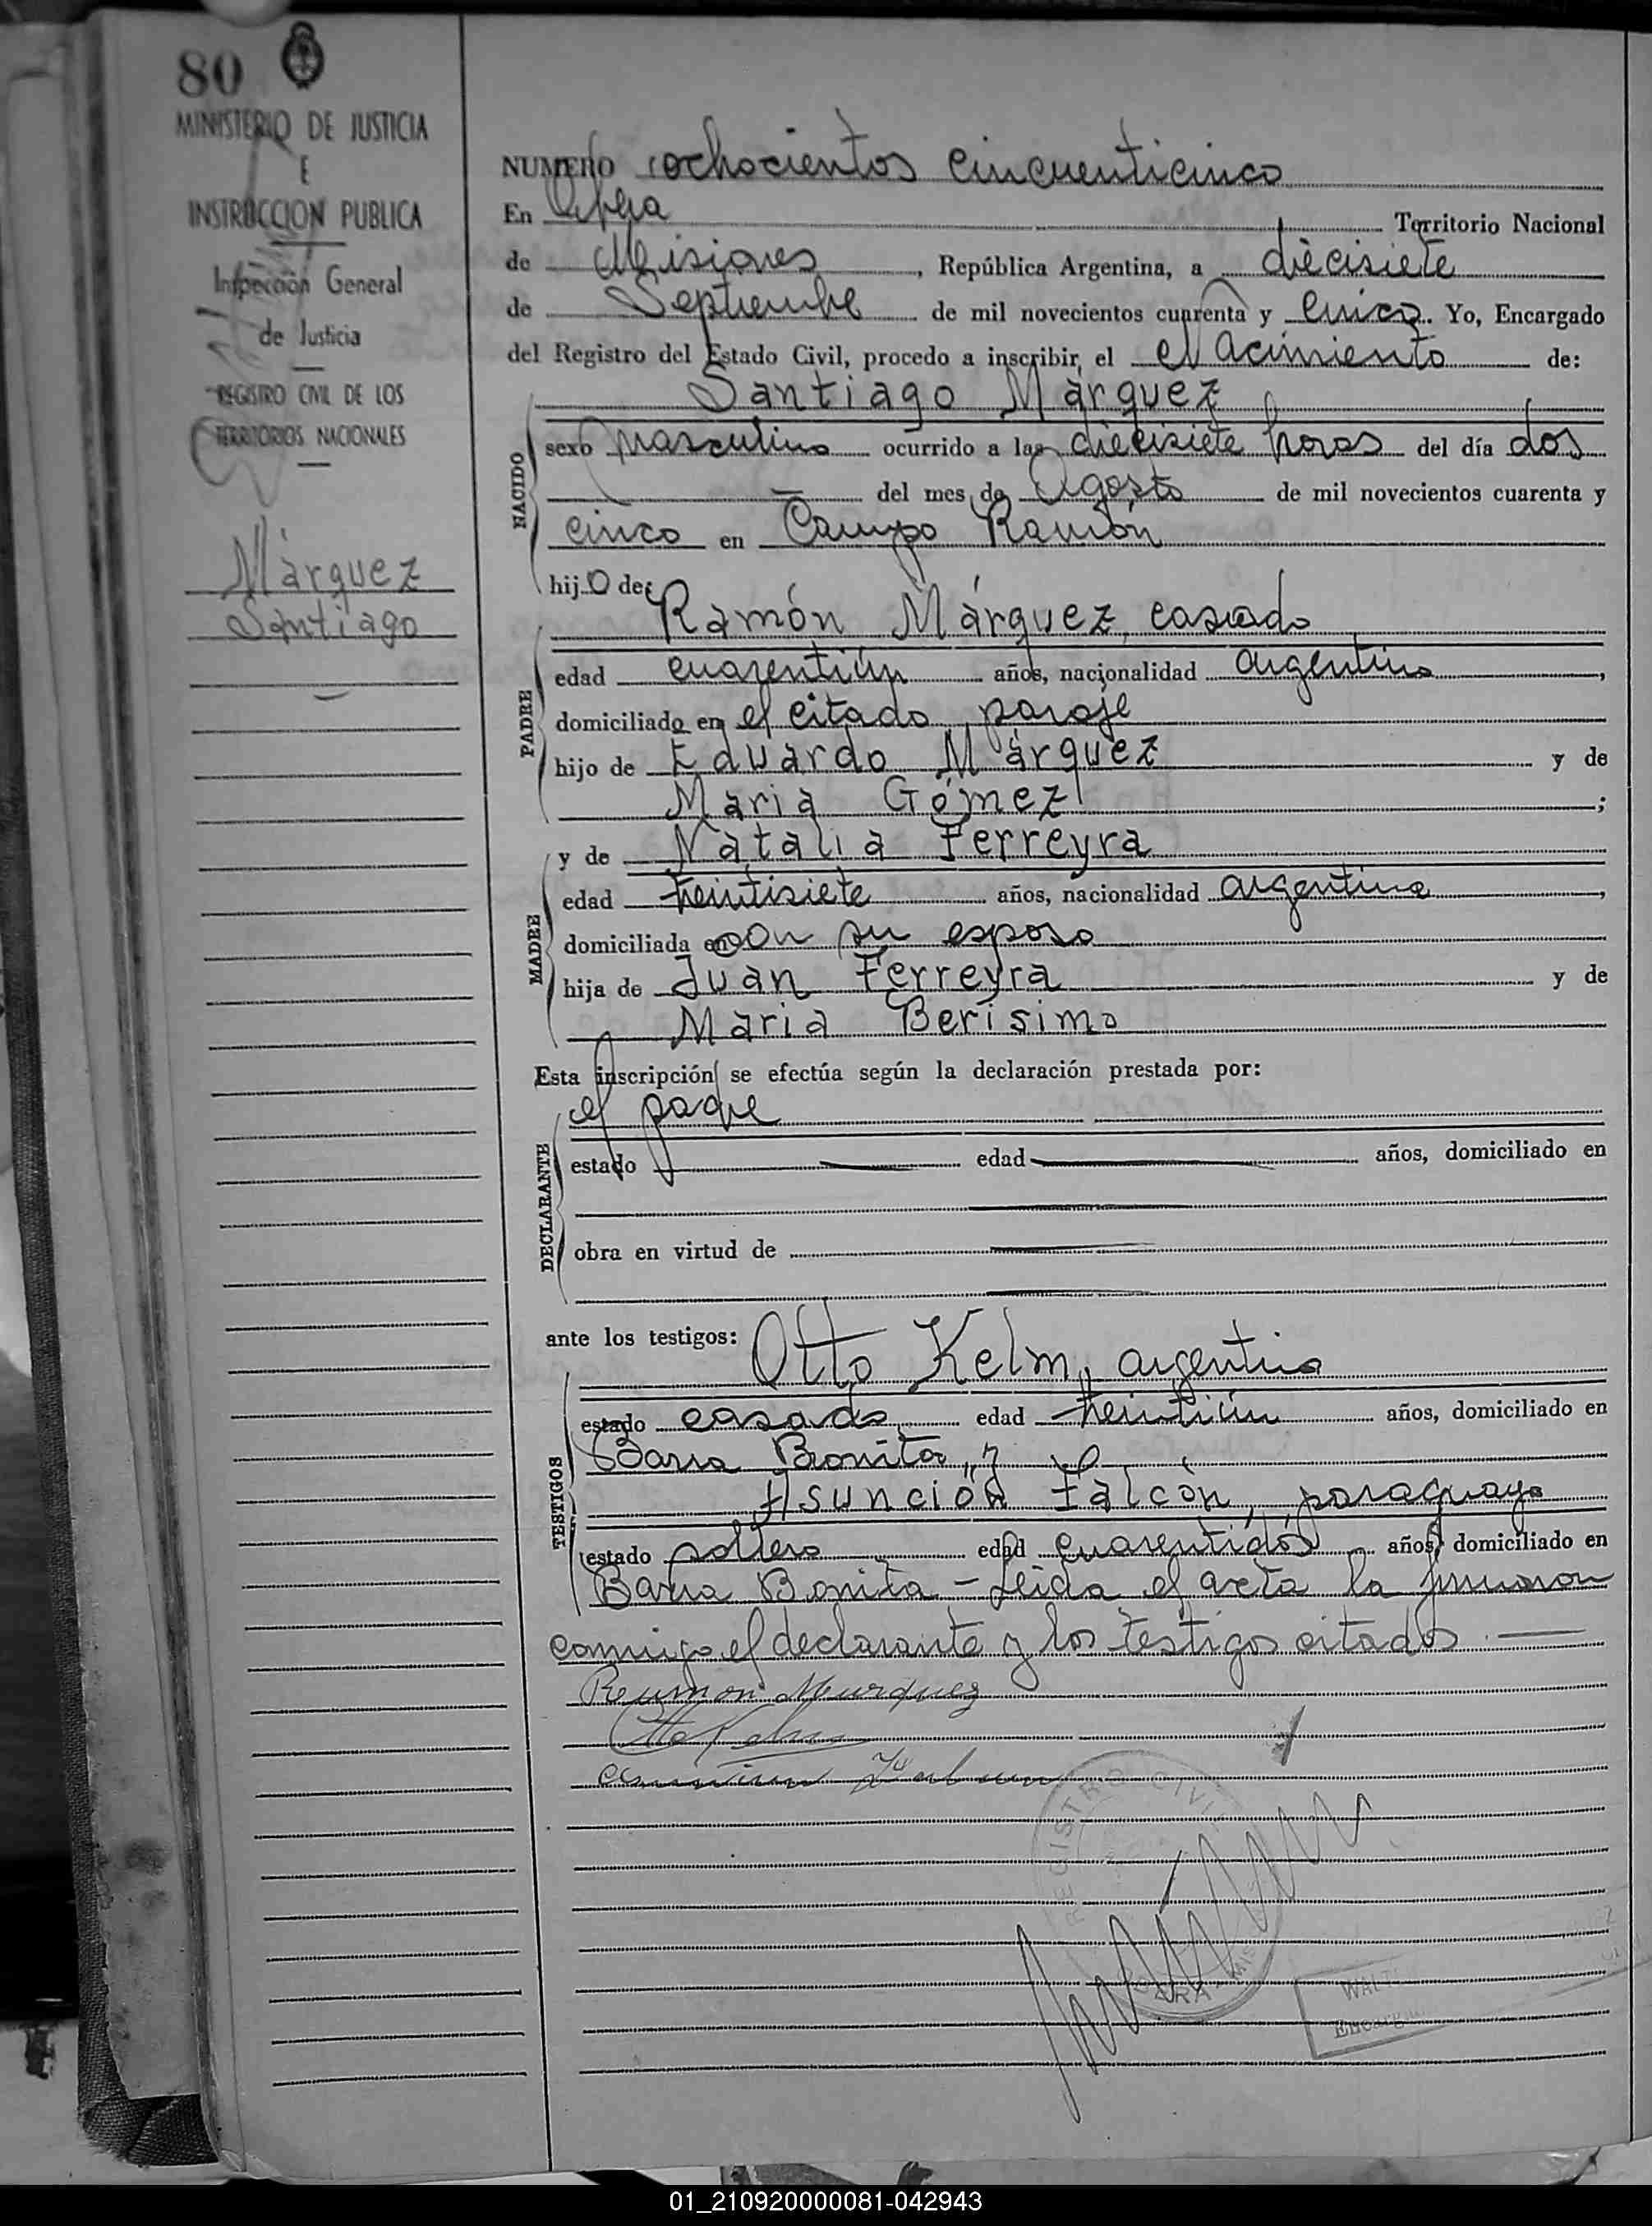 80
MINISTERIO DE JUSTICIA
E
INSTRUCCION PUBLICA
Inspección General
de Justicia
REGISTRO CIVIL DE LOS
TERRITORIOS NACIONALES
Márquez
Santiago
NUMERO ochocientos cincuenticinco
En Oberá Territorio Nacional
de Misiones, República Argentina, a diecisiete
de Septiembre de mil novecientos cuarenta y cinco. Yo, Encargado
del Registro del Estado Civil, procedo a inscribir, el nacimiento de:
Santiago Márquez
NACIDO
sexo masculino ocurrido a las diecisiete horas del día dos
del mes de Agosto de mil novecientos cuarenta y
cinco en Campo Ramón
hijo de:
Ramón Márquez, casado
PADRE
edad cuarentiún años, nacionalidad argentino,
domiciliado en el citado paraje
hijo de Eduardo Márquez y de
Maria Gómez;
y de Natalia Ferreyra
MADRE
edad treintisiete años, nacionalidad argentina,
domiciliada en con su esposo
hija de Juan Ferreyra y de
Maria Berísimo
Esta inscripción se efectúa según la declaración prestada por:
el padre
DECLARANTE
estado edad años, domiciliado en
obra en virtud de
ante los testigos:
Otto Kelm, argentino
TESTIGOS
estado casado edad treintiún años, domiciliado en
Barra Bonita, y
Asunción Falcón, paraguayo
estado soltero edad cuarentidós años, domiciliado en
Barra Bonita - Leida el acta la firmaron
conmigo el declarante y los testigos citados.
Otto Kelm
REGISTRO CIVIL
WALT
Encarg
01_210920000081-042943